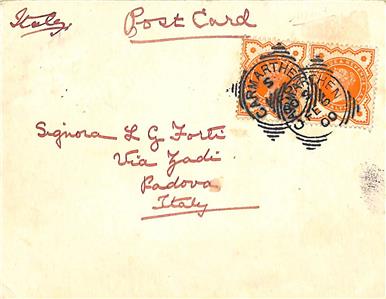 Italy
Post Card
CARMARTHEN
Signora L G Forti
Via Zadi
Padova
Italy